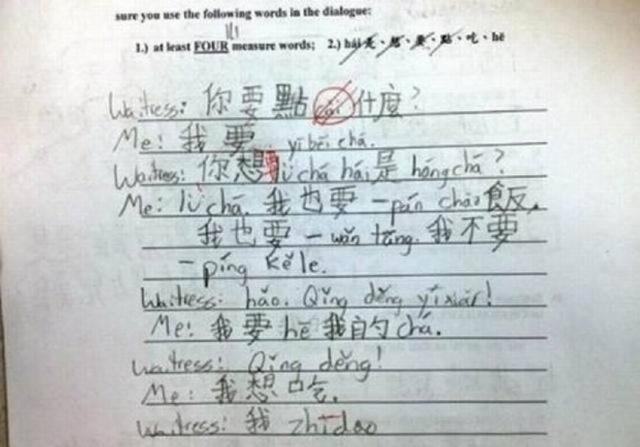 sure you use the following words in the dialogue:
1.) at least FOUR measure words; 2.) hái是、想、要、點、吃、hē
Waitress: 你要點 什麼?
Me: 我要 yì bēi chá.
Waitress: 你想要lǜ chá hái是 hóng chá?
Me: lǜ chá. 我也要一pán chǎo飯,
我也要一wǎn tāng. 我不要
一píng kělè.
Waitress: hǎo. Qǐng děng yíxiàr!
Me: 我要 hē 我的 chá.
Waitress: Qǐng děng!
Me: 我想吃.
Waitress: 我 zhīdao